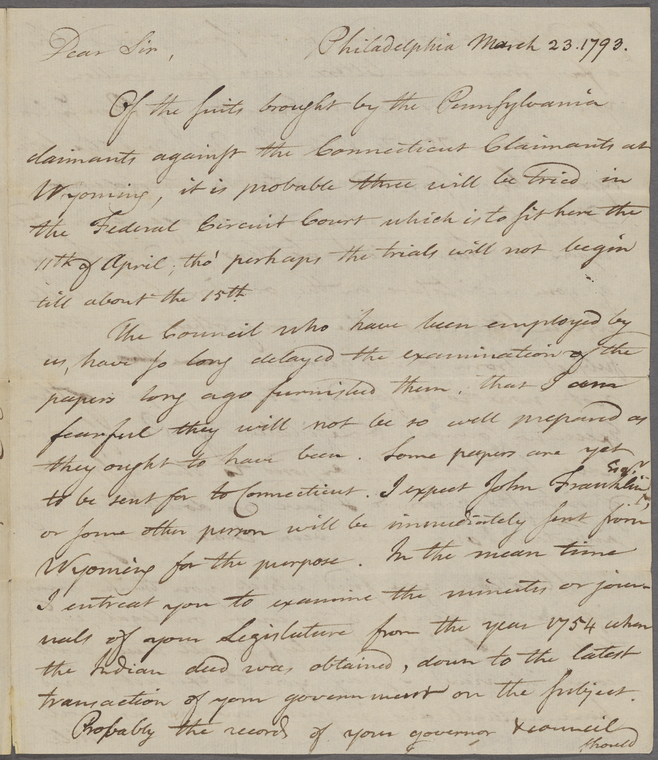 Dear Sir, Philadelphia March 23. 1793.
Of the suits brought by the Pennsylvania
claimants against the Connecticut Claimants at
Wyoming, it is probable three will be tried in
the Federal Circuit Court which is to sit here the
11th of April; tho' perhaps the trials will not begin
till about the 15th
The Council who have been employed by
us, have so long delayed the examination of the
papers long ago furnished them, that I am
fearful they will not be so well prepared as
they ought to have been. Some papers are yet
to be sent for to Connecticut. I expect John Franklin Esqr
or some other person will be immediately sent from
Wyoming for the purpose. In the mean time
I entreat you to examine the minutes or jour-
nals of your Legislature from the year 1754 when
the Indian deed was obtained, down to the latest
transaction of your government on the subject.
Probably the records of your governor & council
should